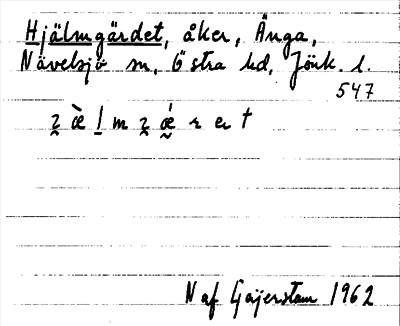 Hjälmgärdet, åker, Änga,
Nävelsjö sn, Östra hd, Jönk. l.
547
N af Geijerstam 1962